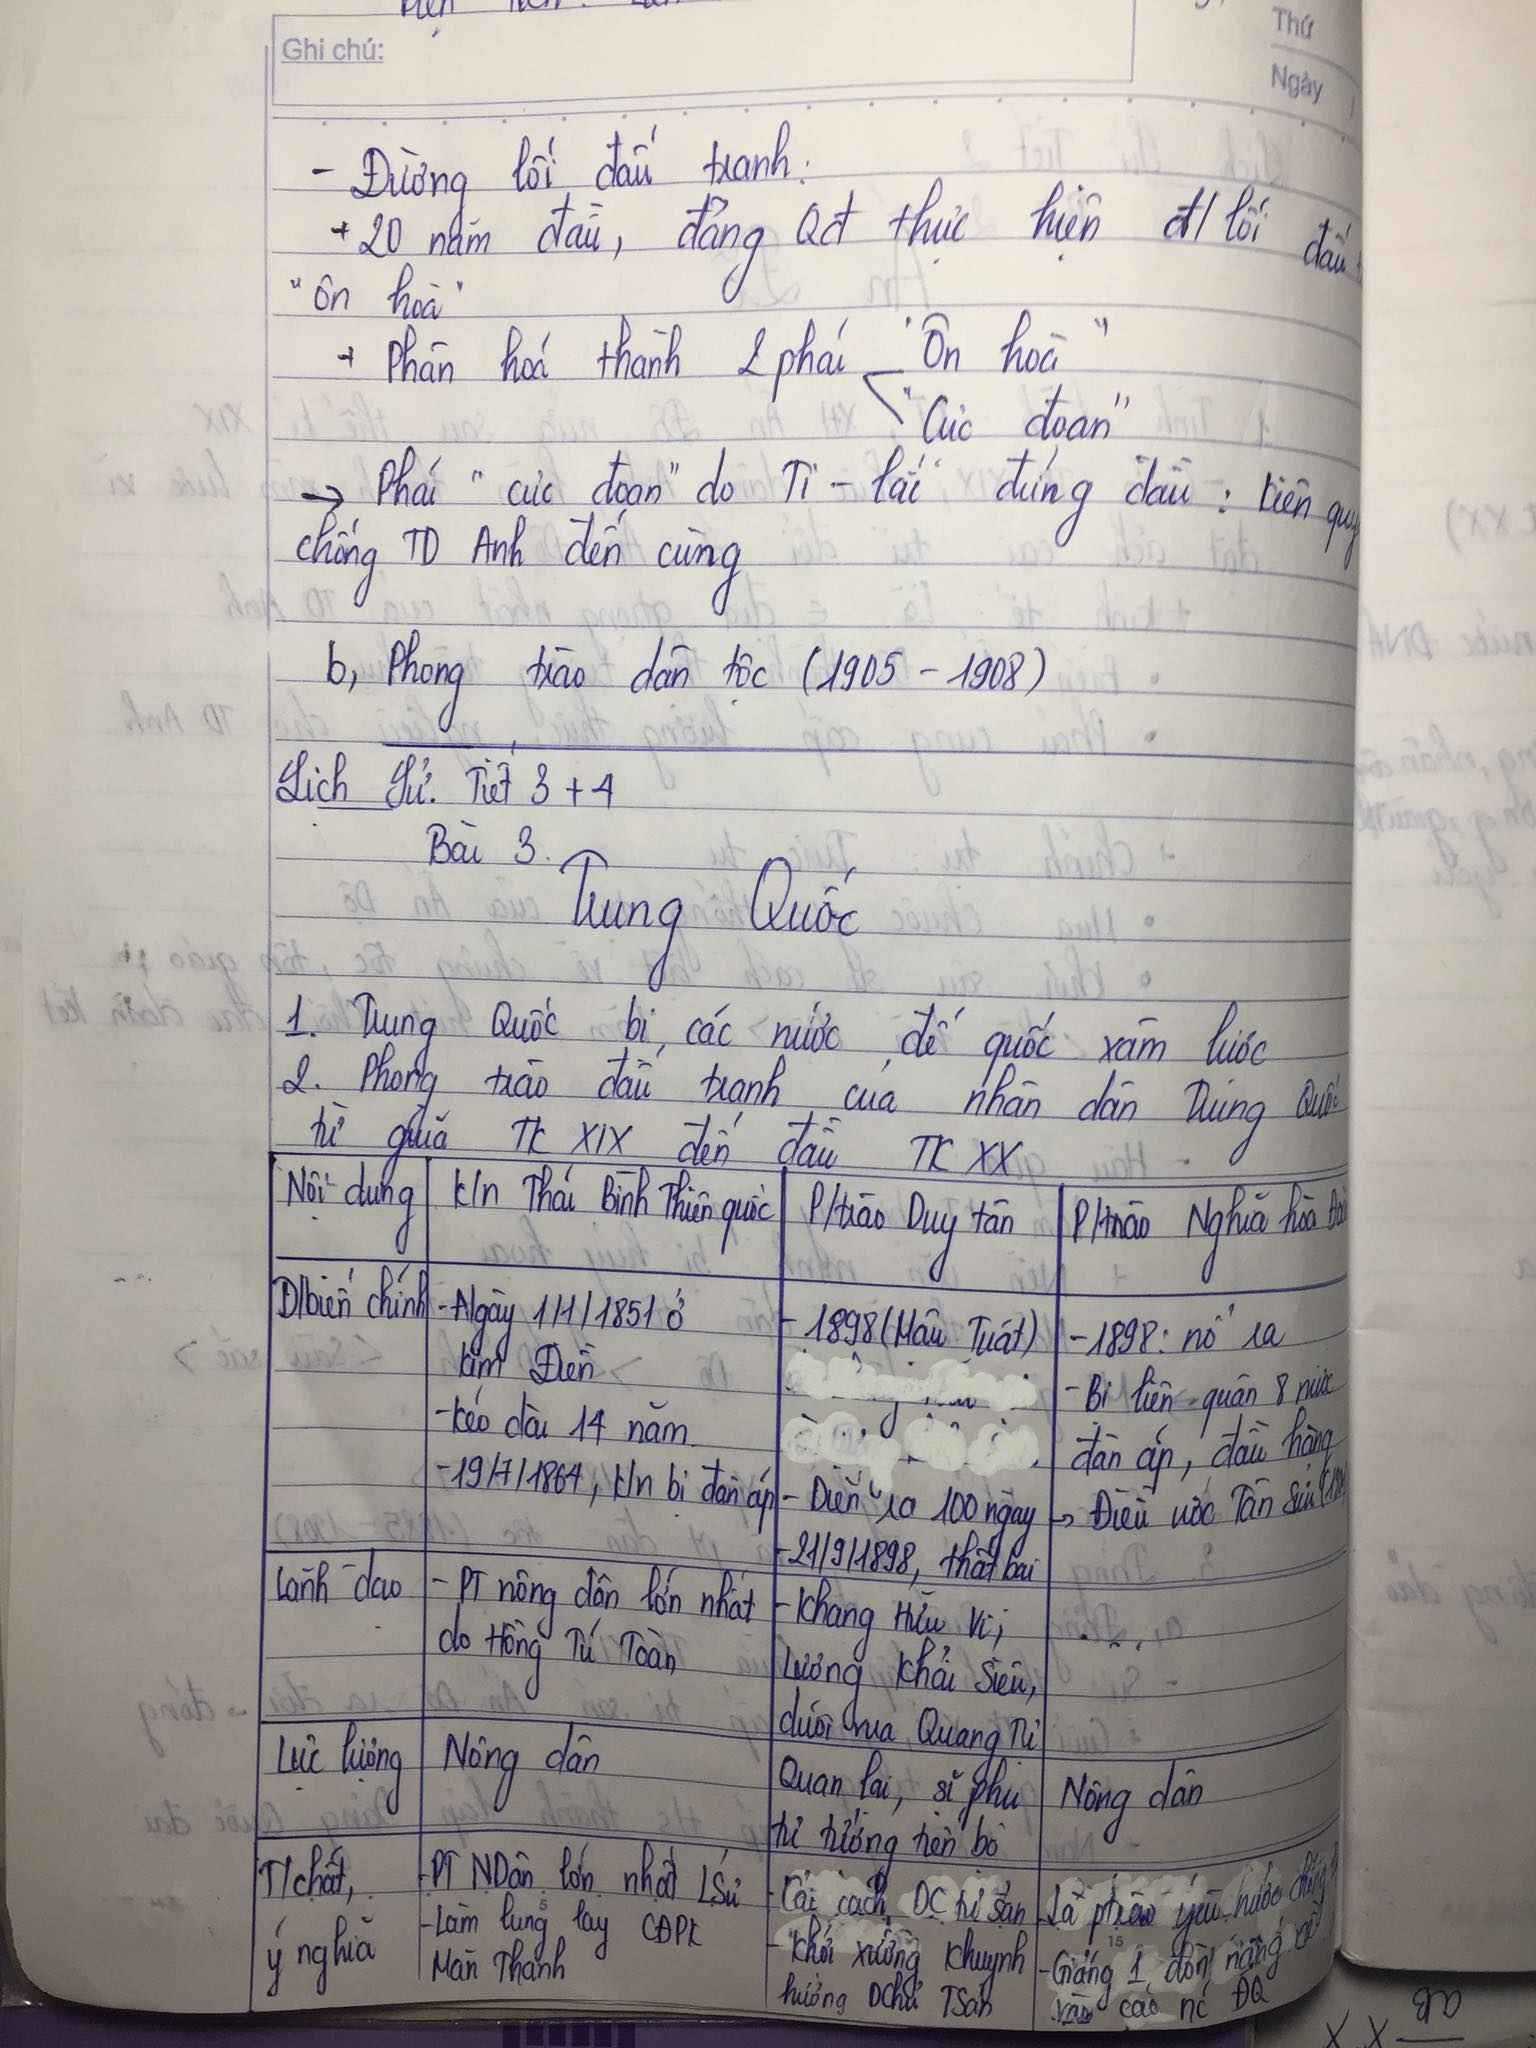 Ghi chú:
Thứ
Ngày
- Đường lối đấu tranh:
+ 20 năm đầu, đảng Qđ thực hiện đ/lối đấu
"ôn hoà"
+ Phân hoá thành 2 phái "Ôn hoà"
"Cực đoan"
→ Phái "cực đoan" do Ti-lắc đứng đầu: kiên quy
chống TD Anh đến cùng
b, Phong trào dân tộc (1905 - 1908)
Lịch Sử. Tiết 3 + 4
Bài 3.
Trung Quốc
1. Trung Quốc bị các nước đế quốc xâm lược
2. Phong trào đấu tranh của nhân dân Trung Quốc
từ giữa TK XIX đến đầu TK XX
Nội dung
K/n Thái Bình Thiên quốc
P/trào Duy tân
P/trào Nghĩa hòa Đoàn
D/biến chính
- Ngày 1/1/1851 ở
Kim Điền
- Kéo dài 14 năm
- 19/7/1864, k/n bị đàn áp
- 1898 (Mậu Tuất)
- Diễn ra 100 ngày
- 21/9/1898, thất bại
- 1898: nổ ra
- Bị liên quân 8 nước
đàn áp, đầu hàng
→ Điều ước Tân Sửu
Lãnh đạo
- PT nông dân lớn nhất
do Hồng Tú Toàn
- Khang Hữu Vi;
Lương Khải Siêu,
dưới vua Quang Tự
Lực lượng
Nông dân
Quan lại, sĩ phu
tư tưởng tiến bộ
Nông dân
T/chất,
ý nghĩa
- PT NDân lớn nhất LSử
- Làm lung lay CĐPK
Mãn Thanh
- Cải cách DC tư sản
- Khởi xướng khuynh
hướng DChủ TSản
- Là p/trào yêu nước chống
- Giáng 1 đòn nặng
vào các nc ĐQ